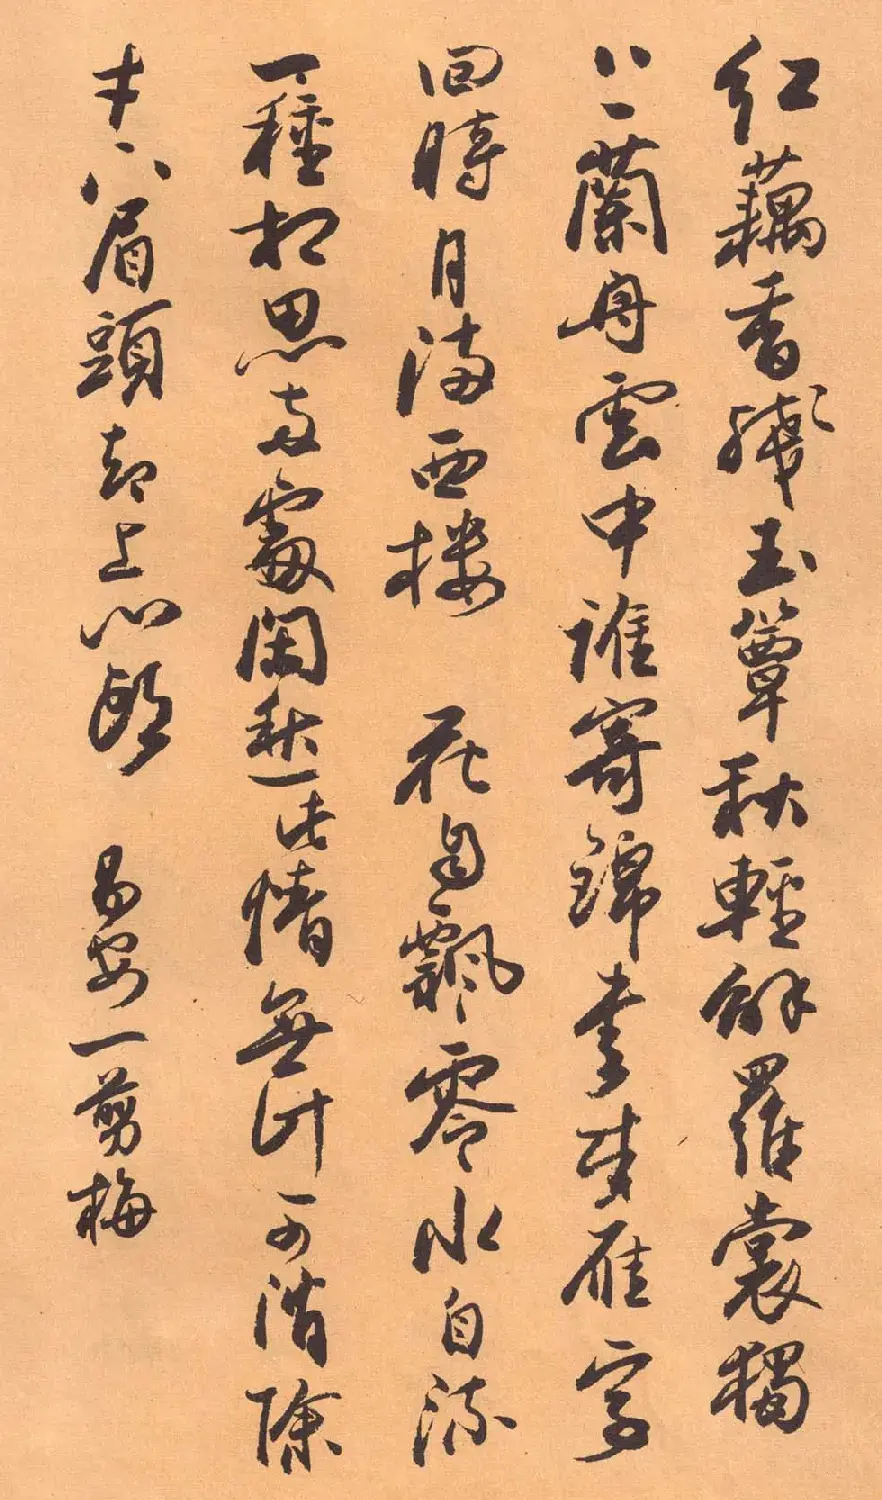 紅藕香殘玉簟秋輕解羅裳獨
上蘭舟雲中誰寄錦書來雁字
回時月滿西樓 花自飄零水自流
一種相思兩處閑愁此情無計可消除
才下眉頭却上心頭 易安一剪梅